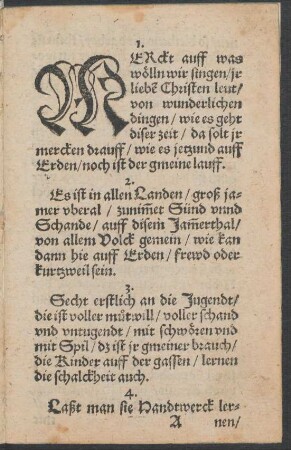 1.
MERckt auff was
wölln wir singen/ jr
liebẽ Christen leut/
von wunderlichen
dingen/ wie es geht
diser zeit/ da solt jr
mercken drauff/ wie es jetzund auff
Erden/ noch ist der gmeine lauff.
2.
Es ist in allen Landen/ groß ja-
mer vberal/ zunim̃et Sünd vnnd
Schande/ auff disem Jam̃erthal/
von allem Volck gemein/ wie kan
dann hie auff Erden/ frewd oder
kurtzweil sein.
3.
Secht erstlich an die Jugendt/
die ist voller můtwill/ voller schand
vnd vntugendt/ mit schwören vnd
mit Spil/ dz ist jr gmeiner brauch/
die Kinder auff der gassen/ lernen
die schalckheit auch.
4.
Laßt man sie Handtwerck ler-
A nen/